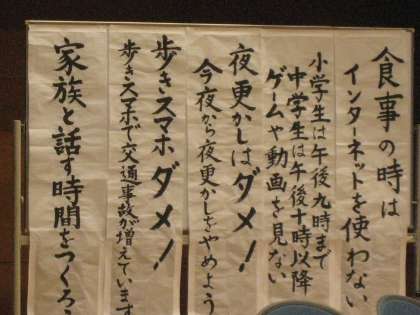 食事の時は
インターネットを使わない
小学生は午後九時まで
中学生は午後十時以降
ゲームや動画を見ない
夜更かしはダメ!
今夜から夜更かしをやめよう
歩きスマホダメ!
歩きスマホで交通事故が増えています
家族と話す時間をつくろう